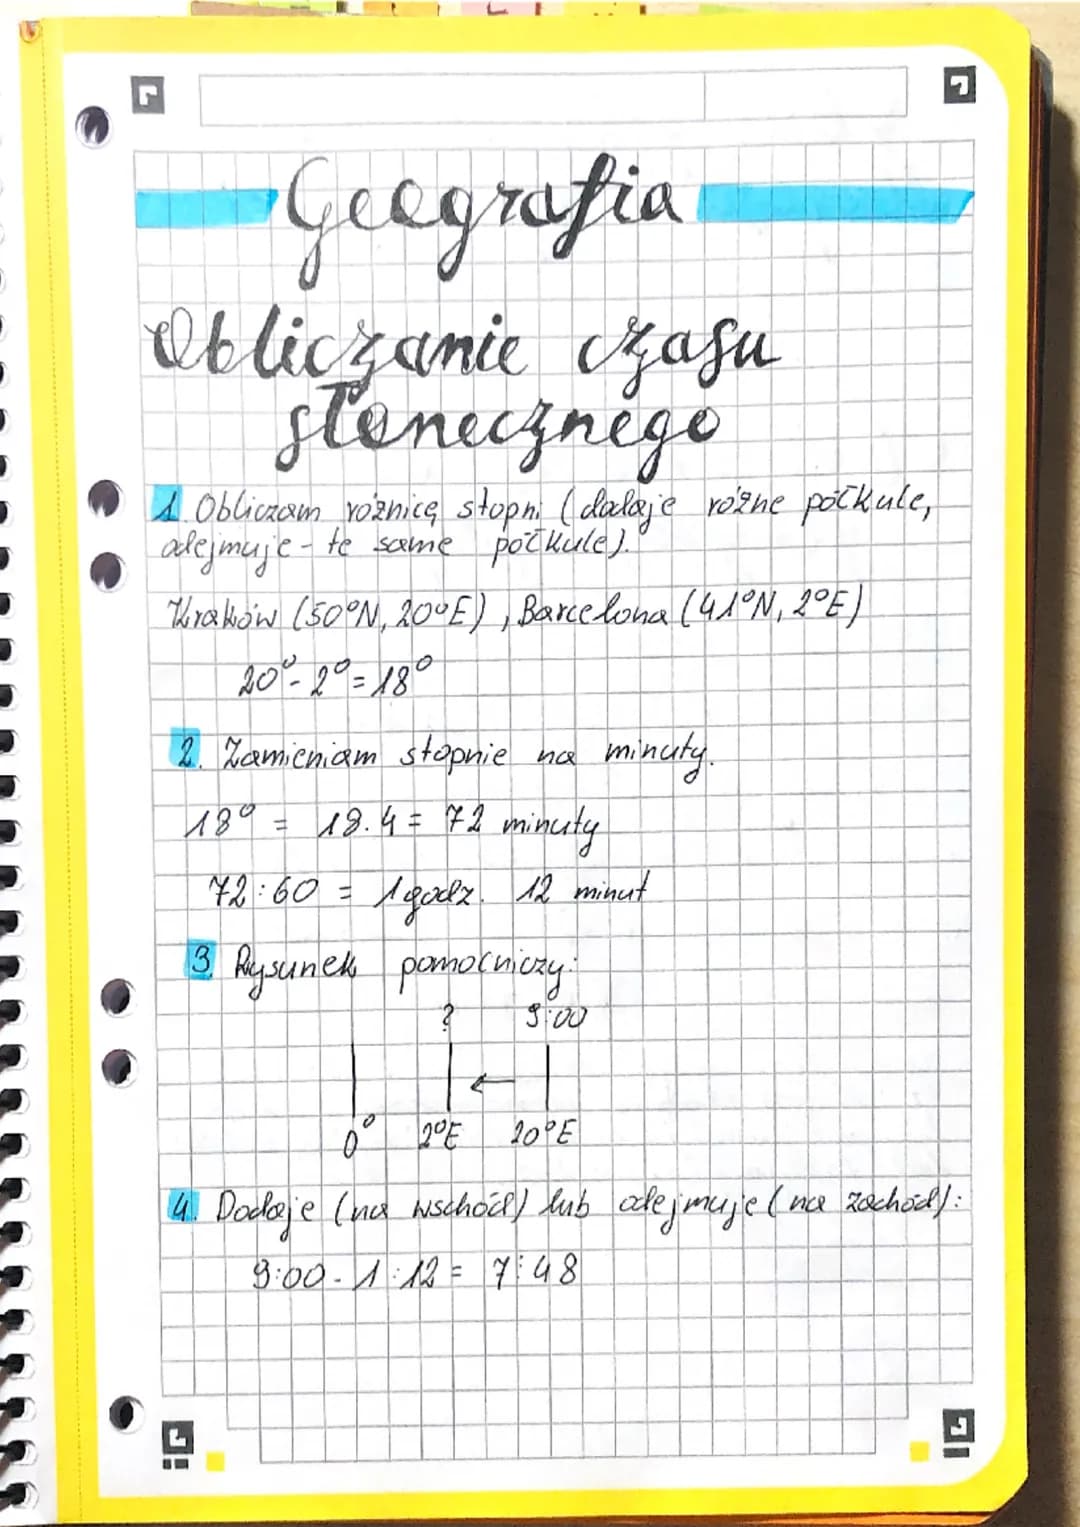 Geografia
Obliczanie czasu
słonecznego
1. Obliczam różnicę stopni (dodaję różne półkule,
odejmuję - te same półkule).
Kraków (50°N, 20°E), Barcelona (41°N, 2°E)
20° - 2° = 18°
2. Zamieniam stopnie na minuty.
18° = 18.4 = 72 minuty
72:60 = 1 godz. 12 minut
3. Rysunek pomocniczy:
? 9:00
←
0° 2°E 20°E
4. Dodaję (na wschód) lub odejmuję (na zachód):
9:00 - 1:12 = 7:48